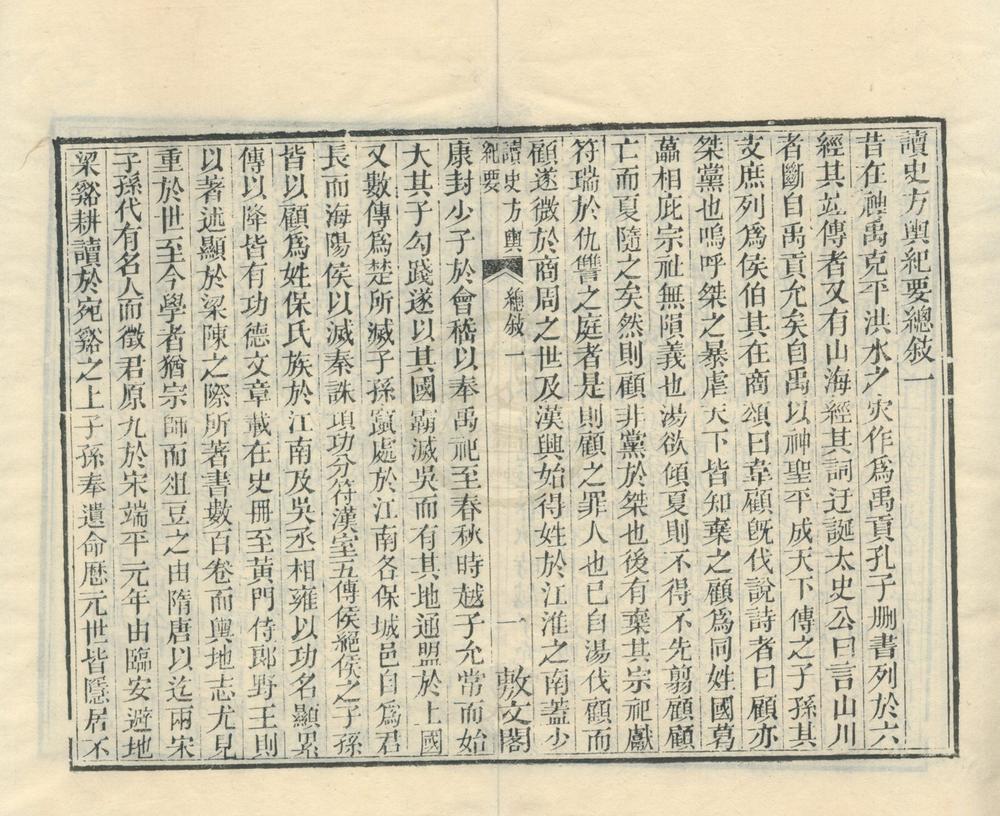 讀史方輿紀要總敍一
昔在神禹克平洪水之灾作爲禹貢孔子刪書列於六
經其竝傳者又有山海經其詞迂誕太史公曰言山川
者斷自禹貢允矣自禹以神聖平成天下傳之子孫其
支庶列爲侯伯其在商頌曰韋顧旣伐說詩者曰顧亦
桀黨也嗚呼桀之暴虐天下皆知棄之顧爲同姓國葛
藟相庇宗祉無隕義也湯欲傾夏則不得不先翦顧顧
亡而夏隨之矣然則顧非黨於桀也後有棄其宗祀獻
符瑞於仇讐之庭者是則顧之罪人也已自湯伐顧而
顧遂微於商周之世及漢興始得姓於江淮之南蓋少
讀史方輿紀要 總敍一 一 敷文閣
康封少子於會稽以奉禹祀至春秋時越子允常而始
大其子勾踐遂以其國霸滅吳而有其地通盟於上國
又數傳爲楚所滅子孫竄處於江南各保城邑自爲君
長而海陽侯以滅秦誅項功分符漢室五傳侯絕侯之子孫
皆以顧爲姓保氏族於江南及吳丞相雍以功名顯累
傳以降皆有功德文章載在史冊至黃門侍郎野王則
以著述顯於梁陳之際所著書數百卷而輿地志尤見
重於世至今學者猶宗師而俎豆之由隋唐以迄兩宋
子孫代有名人而徵君原九於宋端平元年由臨安避地
梁谿耕讀於宛谿之上子孫奉遺命歷元世皆隱居不